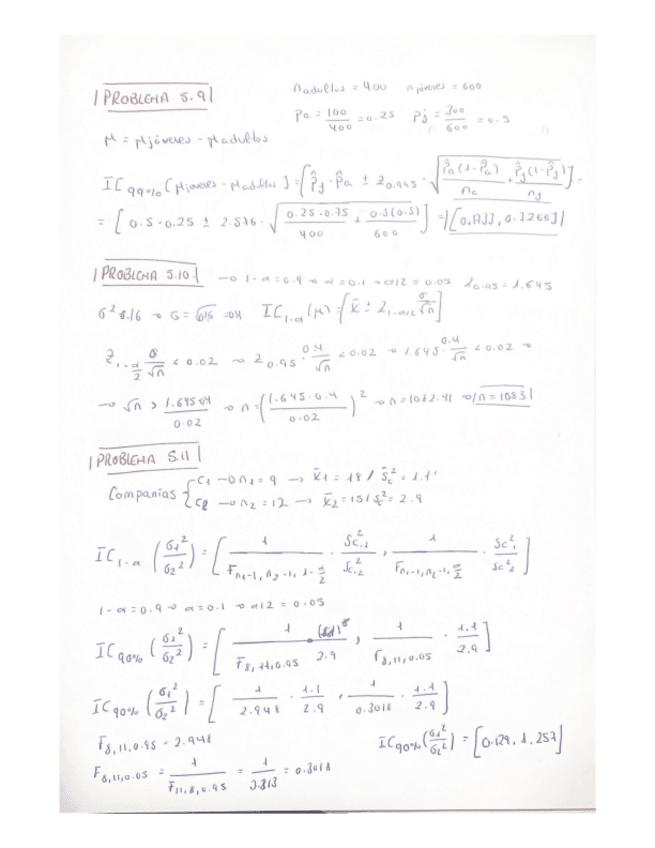 PROBLEMA 5.9
n adultos = 400   n jóvenes = 600
Pa = 100/400 = 0.25   Pj = 300/600 = 0.5
μ = μ jóvenes - μ adultos
IC 99% (μ jóvenes - μ adultos) = [p̂j - p̂a ± z0.995 · √(p̂a(1-p̂a)/na + p̂j(1-p̂j)/nj)] =
= [0.5 - 0.25 ± 2.576 · √(0.25·0.75/400 + 0.5(0.5)/600)] = [0.1733, 0.3266]
PROBLEMA 5.10 → 1-α = 0.9 → α = 0.1 → α/2 = 0.05   z0.95 = 1.645
σ² 0.16 → σ = √0.16 = 0.4   IC1-α (μ) = [x̄ ± z1-α/2 σ/√n]
z1-α/2 σ/√n < 0.02 → z0.95 · 0.4/√n < 0.02 → 1.645 · 0.4/√n < 0.02 →
→ √n > 1.645·0.4/0.02 → n = (1.645·0.4/0.02)² → n = 1082.41 → n = 1083
PROBLEMA 5.11
Companias { C1 → n1 = 9 → x̄1 = 18 / Sc² = 1.1
C2 → n2 = 12 → x̄2 = 15 / Sc² = 2.9
IC1-α (σ1²/σ2²) = [1/F n1-1, n2-1, 1-α/2 · Sc,1²/Sc,2² , 1/F n1-1, n2-1, α/2 · Sc²1/Sc²2]
1-α = 0.9 → α = 0.1 → α/2 = 0.05
IC 90% (σ1²/σ2²) = [1/F8,11,0.95 2.9 , 1/F8,11,0.05 · 1.1/2.9]
IC 90% (σ1²/σ2²) = [1/2.948 · 1.1/2.9 , 1/0.3018 · 1.1/2.9]
F8,11,0.95 = 2.948
IC 90% (σ1²/σ2²) = [0.129, 1.257]
F8,11,0.05 = 1/F11,8,0.95 = 1/3.313 = 0.3018